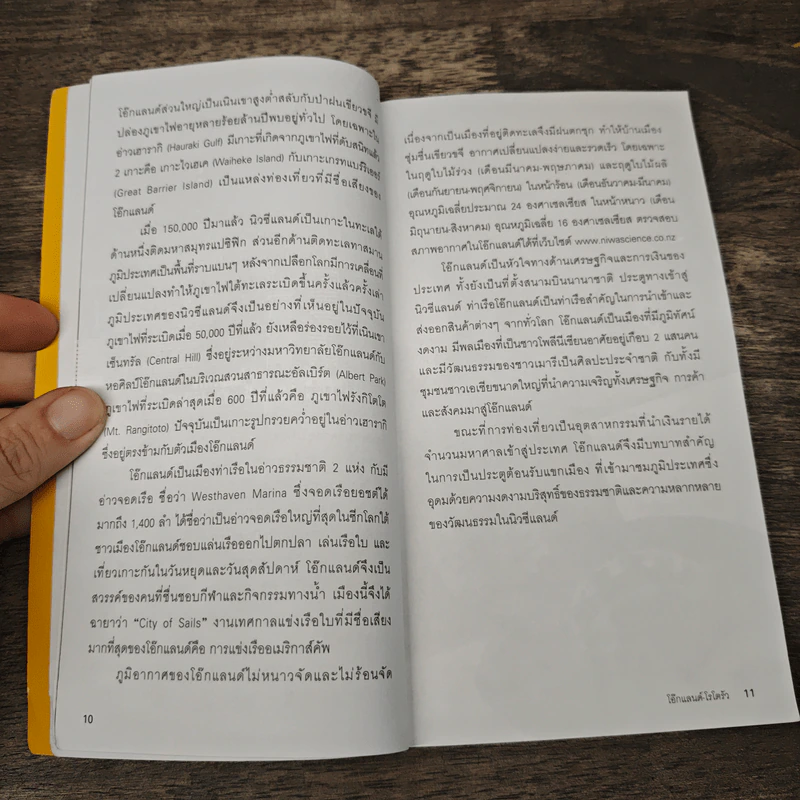 โอ๊กแลนด์ส่วนใหญ่เป็นเนินเขาสูงต่ำสลับกับป่าฝนเขียวขจี มี
ปล่องภูเขาไฟอายุหลายร้อยล้านปีพบอยู่ทั่วไป โดยเฉพาะใน
อ่าวเฮารากิ (Hauraki Gulf) มีเกาะที่เกิดจากภูเขาไฟที่ดับสนิทแล้ว
2 เกาะคือ เกาะไวเฮเค (Waiheke Island) กับเกาะเกรทแบร์ริเออร์
(Great Barrier Island) เป็นแหล่งท่องเที่ยวที่มีชื่อเสียงของ
โอ๊กแลนด์
เมื่อ 150,000 ปีมาแล้ว นิวซีแลนด์เป็นเกาะในทะเลใต้
ด้านหนึ่งติดมหาสมุทรแปซิฟิก ส่วนอีกด้านติดทะเลทาสมาน
ภูมิประเทศเป็นพื้นที่ราบแบนๆ หลังจากเปลือกโลกมีการเคลื่อนที่
เปลี่ยนแปลงทำให้ภูเขาไฟใต้ทะเลระเบิดขึ้นครั้งแล้วครั้งเล่า
ภูมิประเทศของนิวซีแลนด์จึงเป็นอย่างที่เห็นอยู่ในปัจจุบัน
ภูเขาไฟที่ระเบิดเมื่อ 50,000 ปีที่แล้ว ยังเหลือร่องรอยไว้ที่เนินเขา
เซ็นทรัล (Central Hill) ซึ่งอยู่ระหว่างมหาวิทยาลัยโอ๊กแลนด์กับ
หอศิลป์โอ๊กแลนด์ในบริเวณสวนสาธารณะอัลเบิร์ต (Albert Park)
ภูเขาไฟที่ระเบิดล่าสุดเมื่อ 600 ปีที่แล้วคือ ภูเขาไฟรังกิโตโต
(Mt. Rangitoto) ปัจจุบันเป็นเกาะรูปกรวยคว่ำอยู่ในอ่าวเฮารากิ
ซึ่งอยู่ตรงข้ามกับตัวเมืองโอ๊กแลนด์
โอ๊กแลนด์เป็นเมืองท่าเรือในอ่าวธรรมชาติ 2 แห่ง กับมี
อ่าวจอดเรือ ชื่อว่า Westhaven Marina ซึ่งจอดเรือยอชต์ได้
มากถึง 1,400 ลำ ได้ชื่อว่าเป็นอ่าวจอดเรือใหญ่ที่สุดในซีกโลกใต้
ชาวเมืองโอ๊กแลนด์ชอบแล่นเรือออกไปตกปลา เล่นเรือใบ และ
เที่ยวเกาะกันในวันหยุดและวันสุดสัปดาห์ โอ๊กแลนด์จึงเป็น
สวรรค์ของคนที่ชื่นชอบกีฬาและกิจกรรมทางน้ำ เมืองนี้จึงได้
ฉายาว่า “City of Sails” งานเทศกาลแข่งเรือใบที่มีชื่อเสียง
มากที่สุดของโอ๊กแลนด์คือ การแข่งเรืออเมริกาส์คัพ
ภูมิอากาศของโอ๊กแลนด์ไม่หนาวจัดและไม่ร้อนจัด
10
เนื่องจากเป็นเมืองที่อยู่ติดทะเลจึงมีฝนตกชุก ทำให้บ้านเมือง
ชุ่มชื่นเขียวขจี อากาศเปลี่ยนแปลงง่ายและรวดเร็ว โดยเฉพาะ
ในฤดูใบไม้ร่วง (เดือนมีนาคม-พฤษภาคม) และฤดูใบไม้ผลิ
(เดือนกันยายน-พฤศจิกายน) ในหน้าร้อน (เดือนธันวาคม-มีนาคม)
อุณหภูมิเฉลี่ยประมาณ 24 องศาเซลเซียส ในหน้าหนาว (เดือน
มิถุนายน-สิงหาคม) อุณหภูมิเฉลี่ย 16 องศาเซลเซียส ตรวจสอบ
สภาพอากาศในโอ๊กแลนด์ได้ที่เว็บไซต์ www.niwascience.co.nz
โอ๊กแลนด์เป็นหัวใจทางด้านเศรษฐกิจและการเงินของ
ประเทศ ทั้งยังเป็นที่ตั้งสนามบินนานาชาติ ประตูทางเข้าสู่
นิวซีแลนด์ ท่าเรือโอ๊กแลนด์เป็นท่าเรือสำคัญในการนำเข้าและ
ส่งออกสินค้าต่างๆ จากทั่วโลก โอ๊กแลนด์เป็นเมืองที่มีภูมิทัศน์
งดงาม มีพลเมืองที่เป็นชาวโพลีนีเซียนอาศัยอยู่เกือบ 2 แสนคน
และมีวัฒนธรรมของชาวเมารีเป็นศิลปะประจำชาติ กับทั้งมี
ชุมชนชาวเอเชียขนาดใหญ่ที่นำความเจริญทั้งเศรษฐกิจ การค้า
และสังคมมาสู่โอ๊กแลนด์
ขณะที่การท่องเที่ยวเป็นอุตสาหกรรมที่นำเงินรายได้
จำนวนมหาศาลเข้าสู่ประเทศ โอ๊กแลนด์จึงมีบทบาทสำคัญ
ในการเป็นประตูต้อนรับแขกเมือง ที่เข้ามาชมภูมิประเทศซึ่ง
อุดมด้วยความงดงามบริสุทธิ์ของธรรมชาติและความหลากหลาย
ของวัฒนธรรมในนิวซีแลนด์
โอ๊กแลนด์-โรโตรัว 11